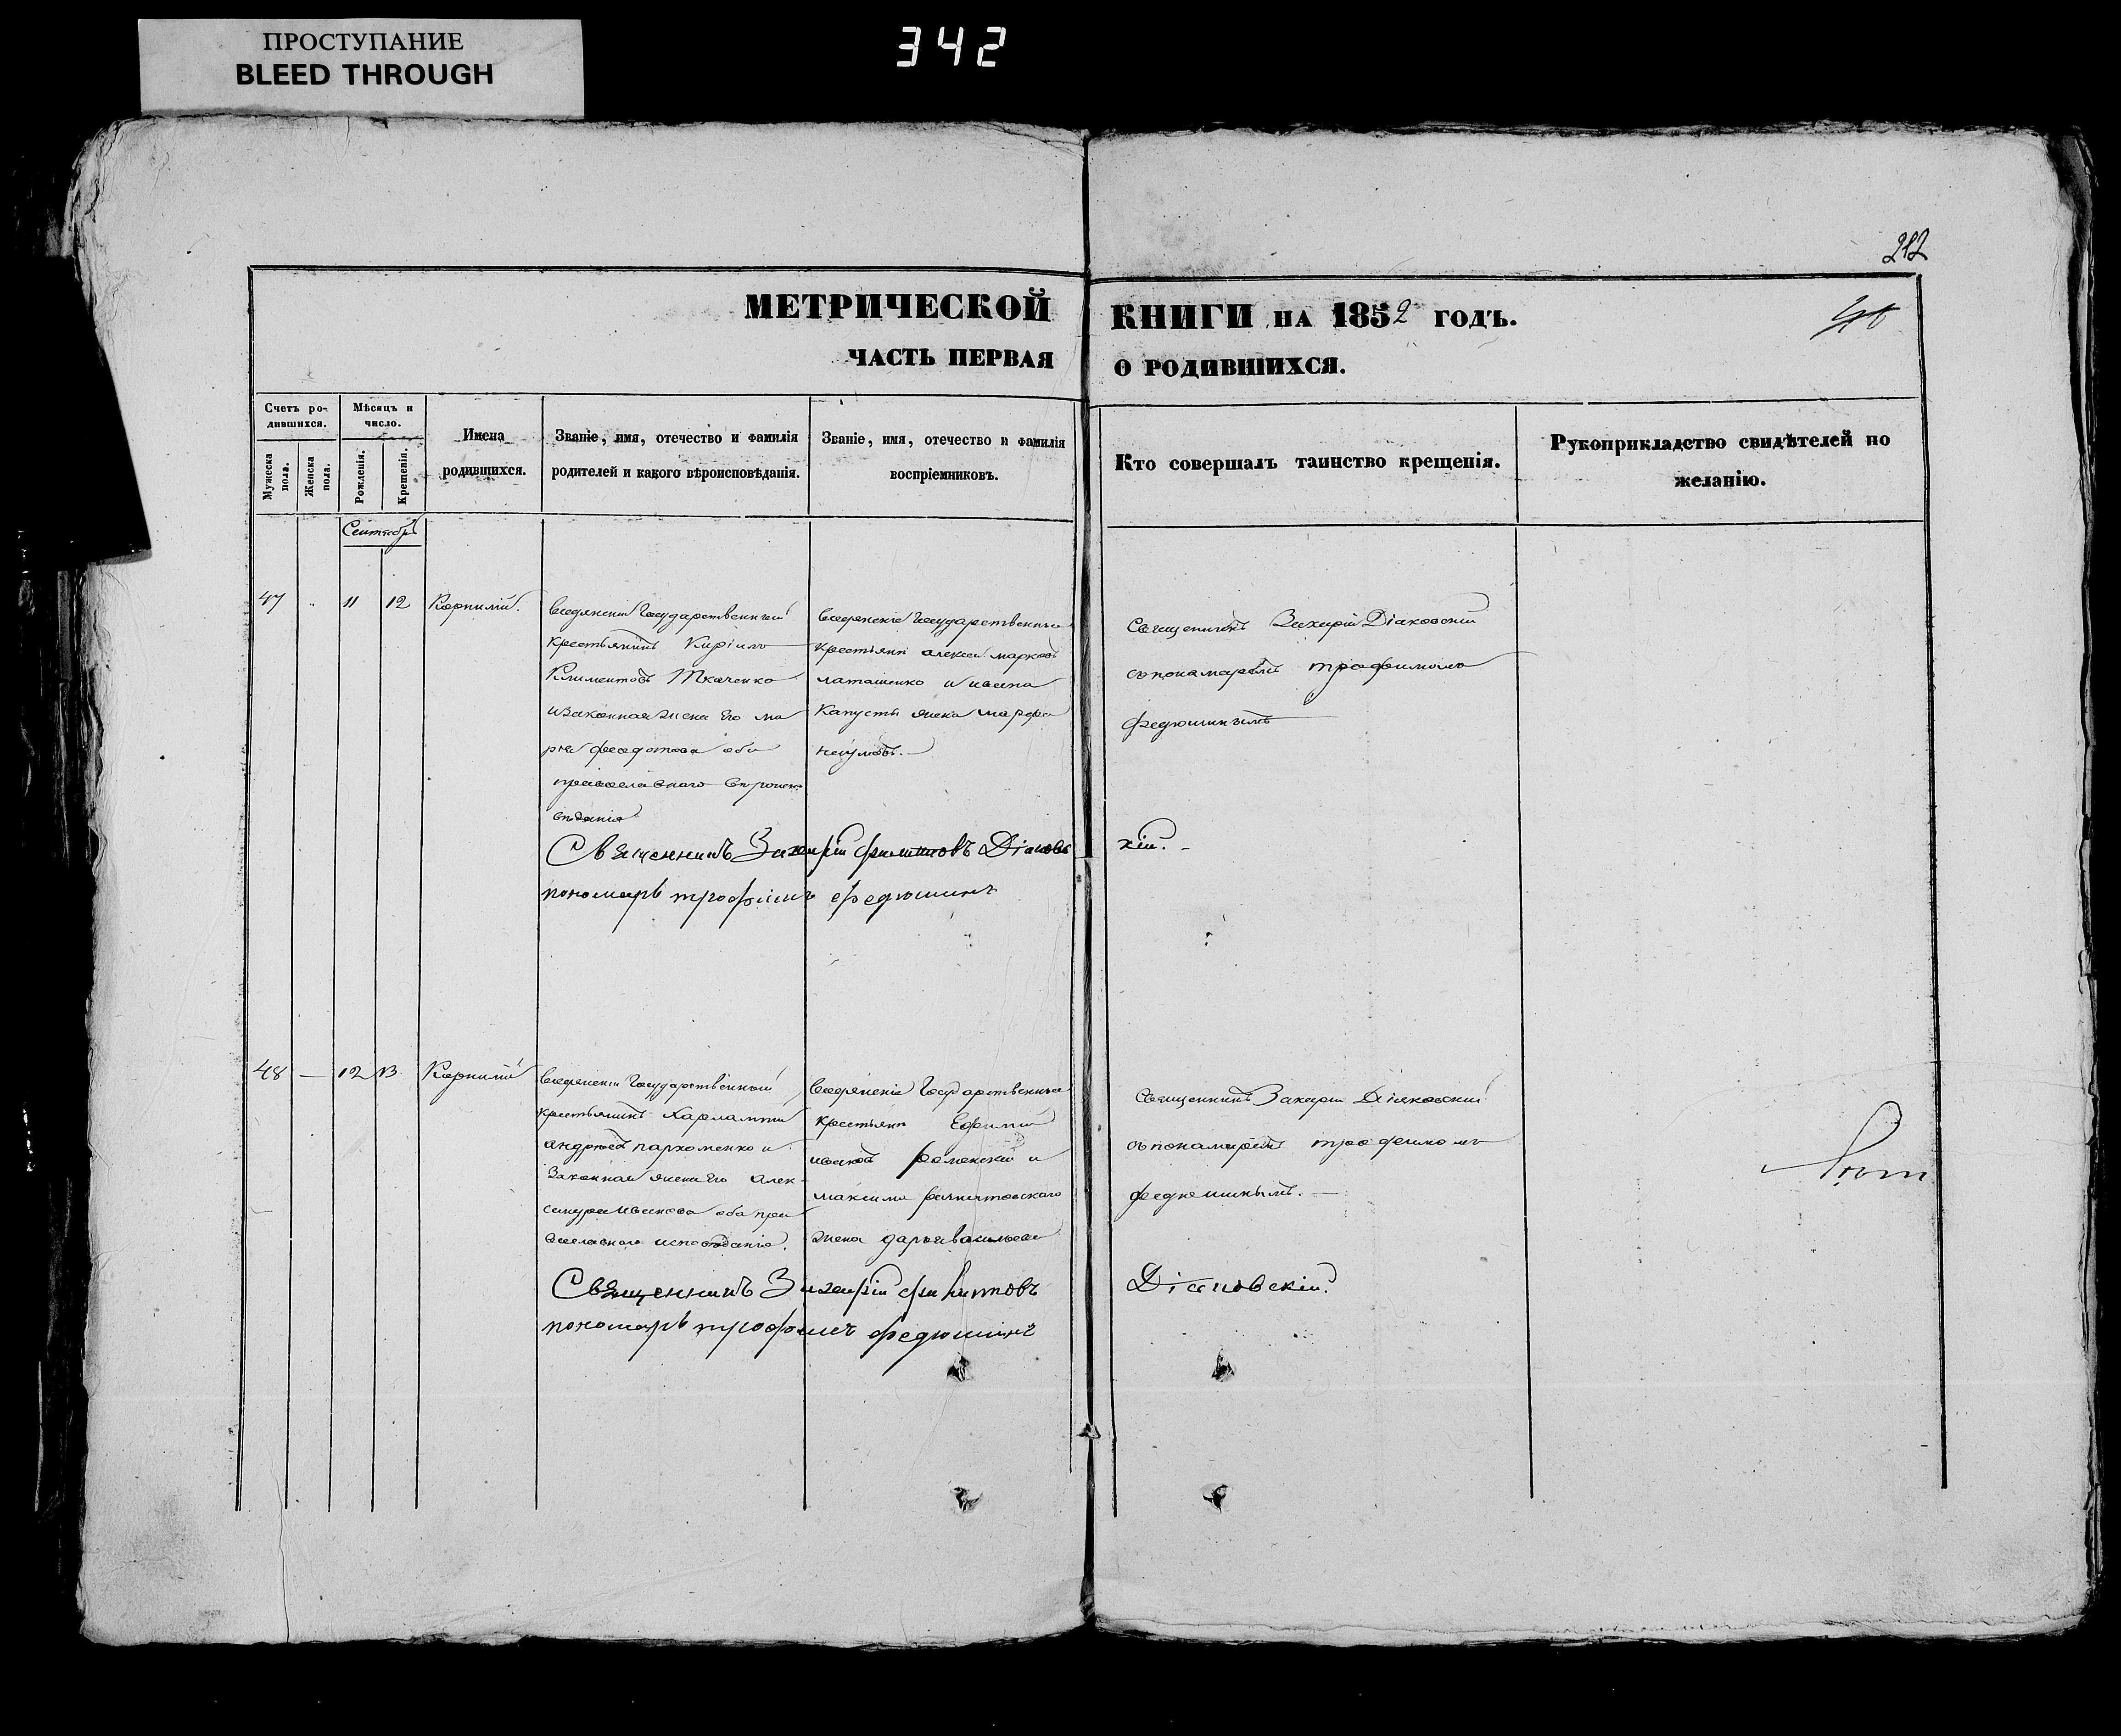 ПРОСТУПАНИЕ
BLEED THROUGH
342
212
МЕТРИЧЕСКОЙ КНИГИ НА 1852 ГОДЪ.
40
ЧАСТЬ ПЕРВАЯ О РОДИВШИХСЯ.
Счетъ ро-
дившихся.
Мужеска
пола.
Женска
пола.
Мѣсяцъ и
число.
Рожденія.
Крещенія.
Имена
родившихся.
Званіе, имя, отечество и фамилія
родителей и какого вѣроисповѣданія.
Званіе, имя, отечество и фамилія
воспріемниковъ.
Кто совершалъ таинство крещенія.
Рукоприкладство свидѣтелей по
желанію.
Сентябрь
47 11 12 Корнилій.
Государственный
крестьянинъ Кирілъ
Климентовъ Ткаченко
и законная жена его ма
рія федотова оба
православнаго вѣроиспо
вѣданія
Государственные
крестьяне алексей марковъ
латашенко и ивана
Капусты жена марфа
наумовъ.
Священникъ Захарій Діаковскій
съ пономаремъ трофимомъ
федюшинымъ
Священникъ Захарій филитовъ Діаковс кій.
пономарь трофимъ федюшинъ
48 — 12 13 Корнилій
Государственный
крестьянинъ Харлампій
андреевъ пархоменко и
законная жена его алек
сандра иванова оба пра
вославнаго исповѣданія.
Государственные
крестьяне Ефимій
ивановъ и
максима
жена дарья васильева
Священникъ Захарій Діаковскій
съ пономаремъ трофимомъ
федюшинымъ.
Священникъ Захарій филитовъ Діаковскій.
пономарь трофимъ федюшинъ